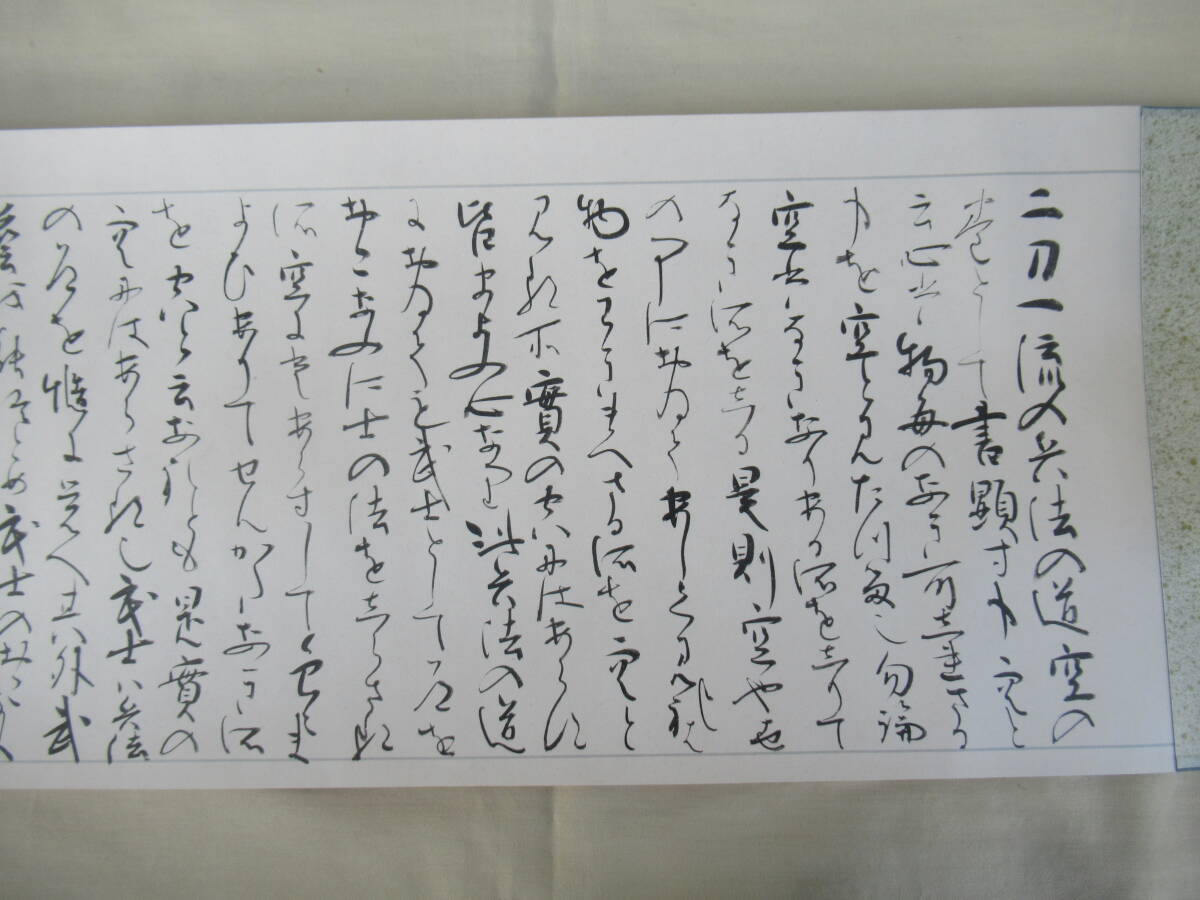 二刀一流の兵法の道空の
巻として書顕す事空と
云心は物毎のなき所しれさる
事を空と見たつる也勿論
空はなきなりある所をしりて
なき所をしる是則空也世
の中におゐてあしく見れは
物をわきまへさる所を空と
見る所実の空にはあらす
皆まよふ心なり此兵法の道
におゐても武士として道を
おこなふに士の法をしらさる
所空にはあらすして色々ま
よひありてせんかたなき所
を空と云なれとも是実の
空にはあらさる也武士は兵法
の道を慥に覚へ其外武
芸を能つとめ武士のおこなふ